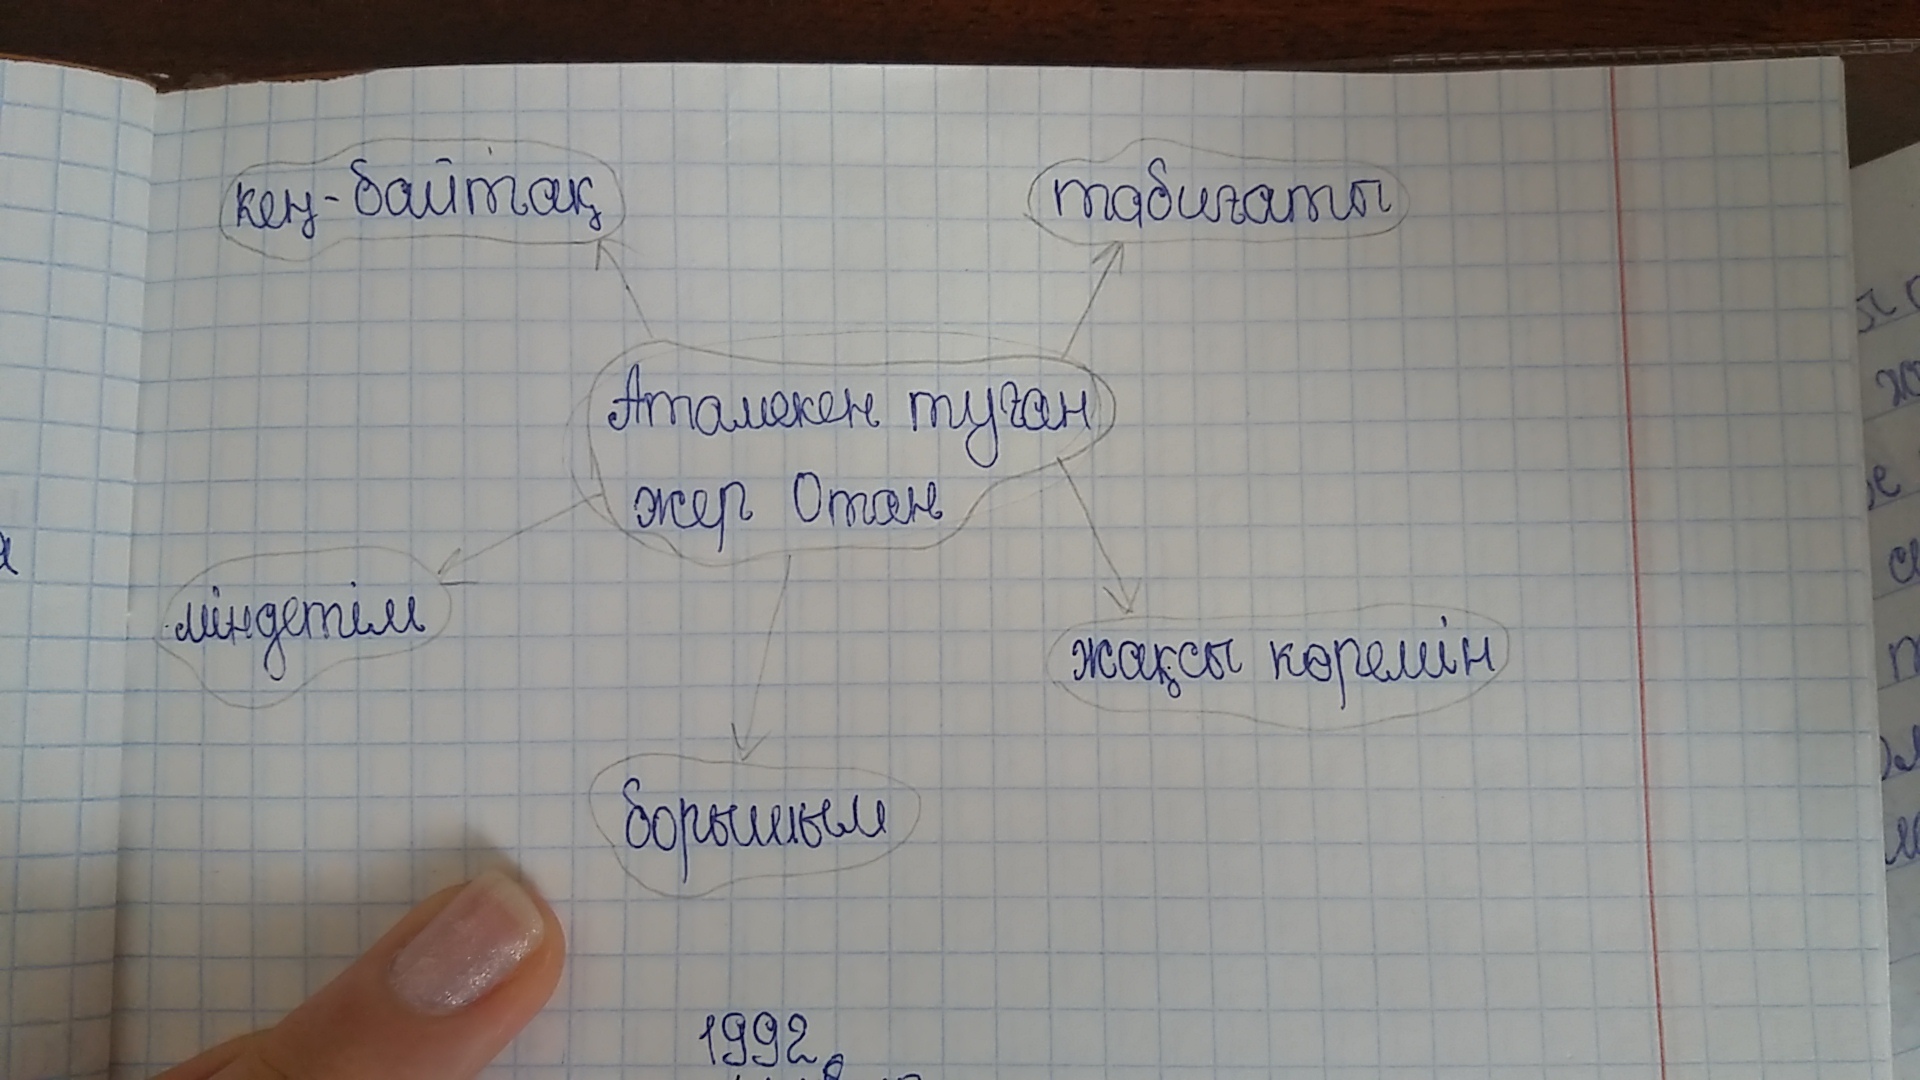 кең-байтақ
табиғаты
Атамекен туған
жер Отан
міндетім
жақсы көремін
борышым
1992